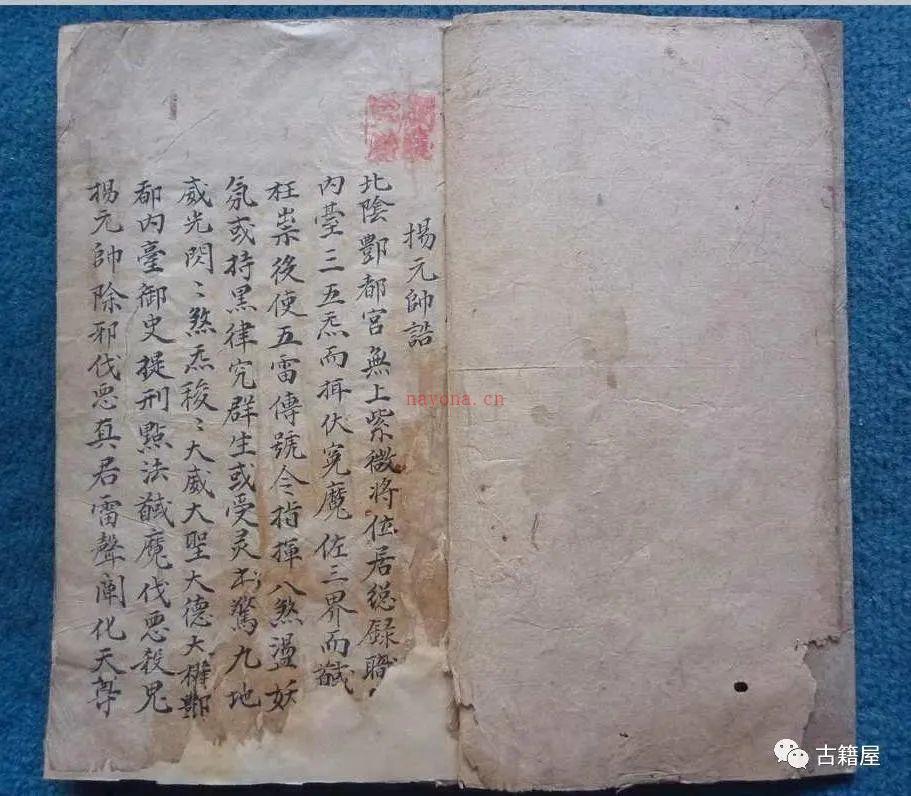 楊元帥誥
北陰酆都宮無上紫微將位居総録職
内臺三五炁而拜伏寃魔佐三界而馘
枉祟後使五雷傳號令指揮八煞盪妖
氛或持黑律究群生或受灵書驚九地
威光閃〻煞炁稜〻大威大聖大德大權酆
都内臺御史提刑點法馘魔伐悪殺鬼
楊元帥除邪伐悪真君雷聲闡化天尊
nayona.cn
古籍屋